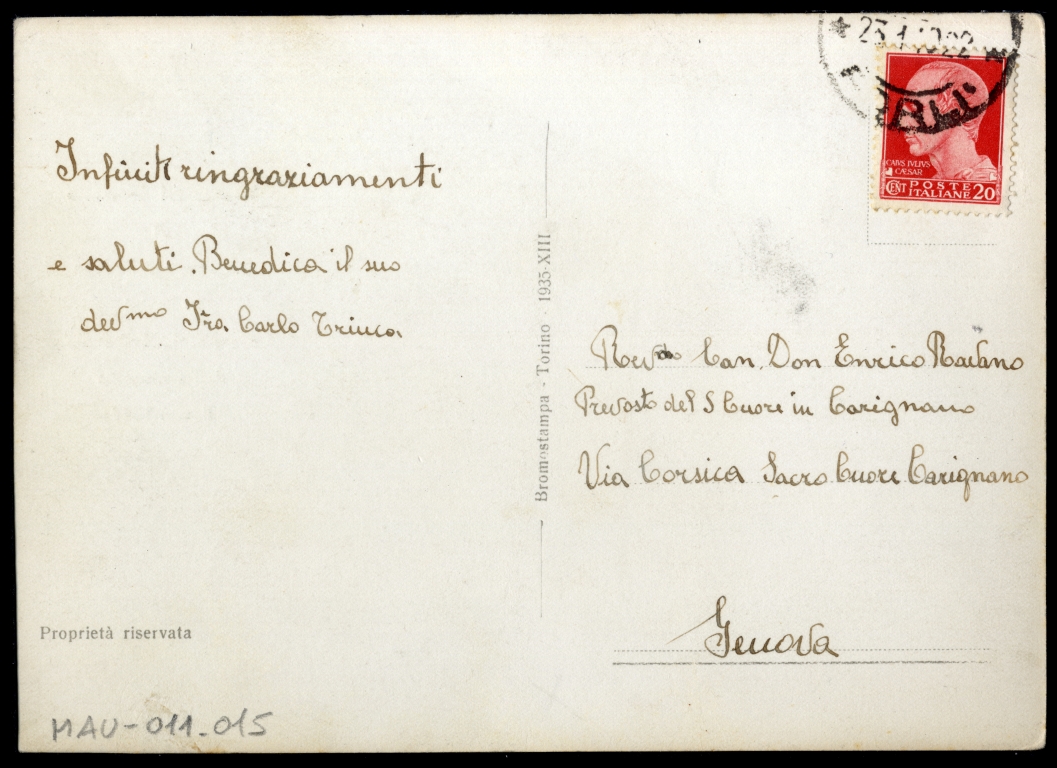 Infiniti ringraziamenti
e saluti. Benedica il suo
dev mo Fra Carlo Trinca
Proprietà riservata
MAU-011-015
Bromostampa - Torino - 1935-XIII
CAIVS IVLIVS
CÆSAR
CENT POSTE
ITALIANE 20
Rev do Can. Don Enrico
Prevosto del S Cuore in Carignano
Via Corsica Sacro Cuore Carignano
Genova